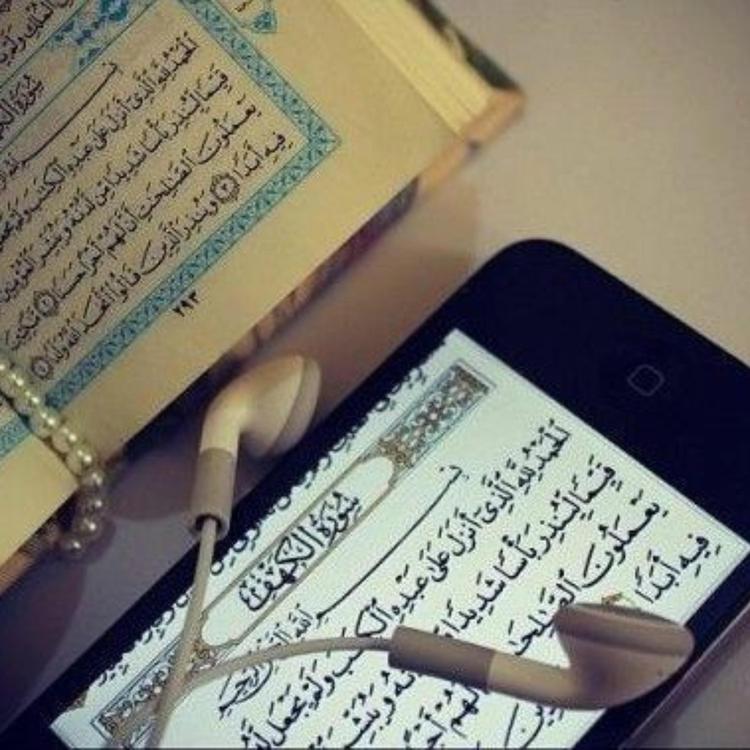 سُورَةُ
ٱلْحَمْدُ لِلَّهِ ٱلَّذِىٓ أَنزَلَ عَلَىٰ عَبْدِهِ ٱلْكِتَٰبَ وَلَمْ يَجْعَل
قَيِّمًا لِّيُنذِرَ بَأْسًا شَدِيدًا مِّن لَّدُنْهُ وَيُبَشِّرَ ٱلْمُؤْمِنِينَ
يَعْمَلُونَ ٱلصَّٰلِحَٰتِ أَنَّ لَهُمْ أَجْرًا حَسَنًا ٢ مَّٰكِثِينَ
فِيهِ أَبَدًا ٣ وَيُنذِرَ ٱلَّذِينَ قَالُوا۟ ٱتَّخَذَ ٱللَّهُ وَلَدًا ٤
٢٩٣
سُورَةُ الْكَهْفِ
بِسْمِ ٱللَّهِ ٱلرَّحْمَٰنِ ٱلرَّحِيمِ
ٱلْحَمْدُ لِلَّهِ ٱلَّذِىٓ أَنزَلَ عَلَىٰ عَبْدِهِ ٱلْكِتَٰبَ وَلَمْ يَجْعَل لَّهُۥ
قَيِّمًا لِّيُنذِرَ بَأْسًا شَدِيدًا وَيُبَشِّرَ
يَعْمَلُونَ لَهُمْ
فِيهِ أَبَدًا